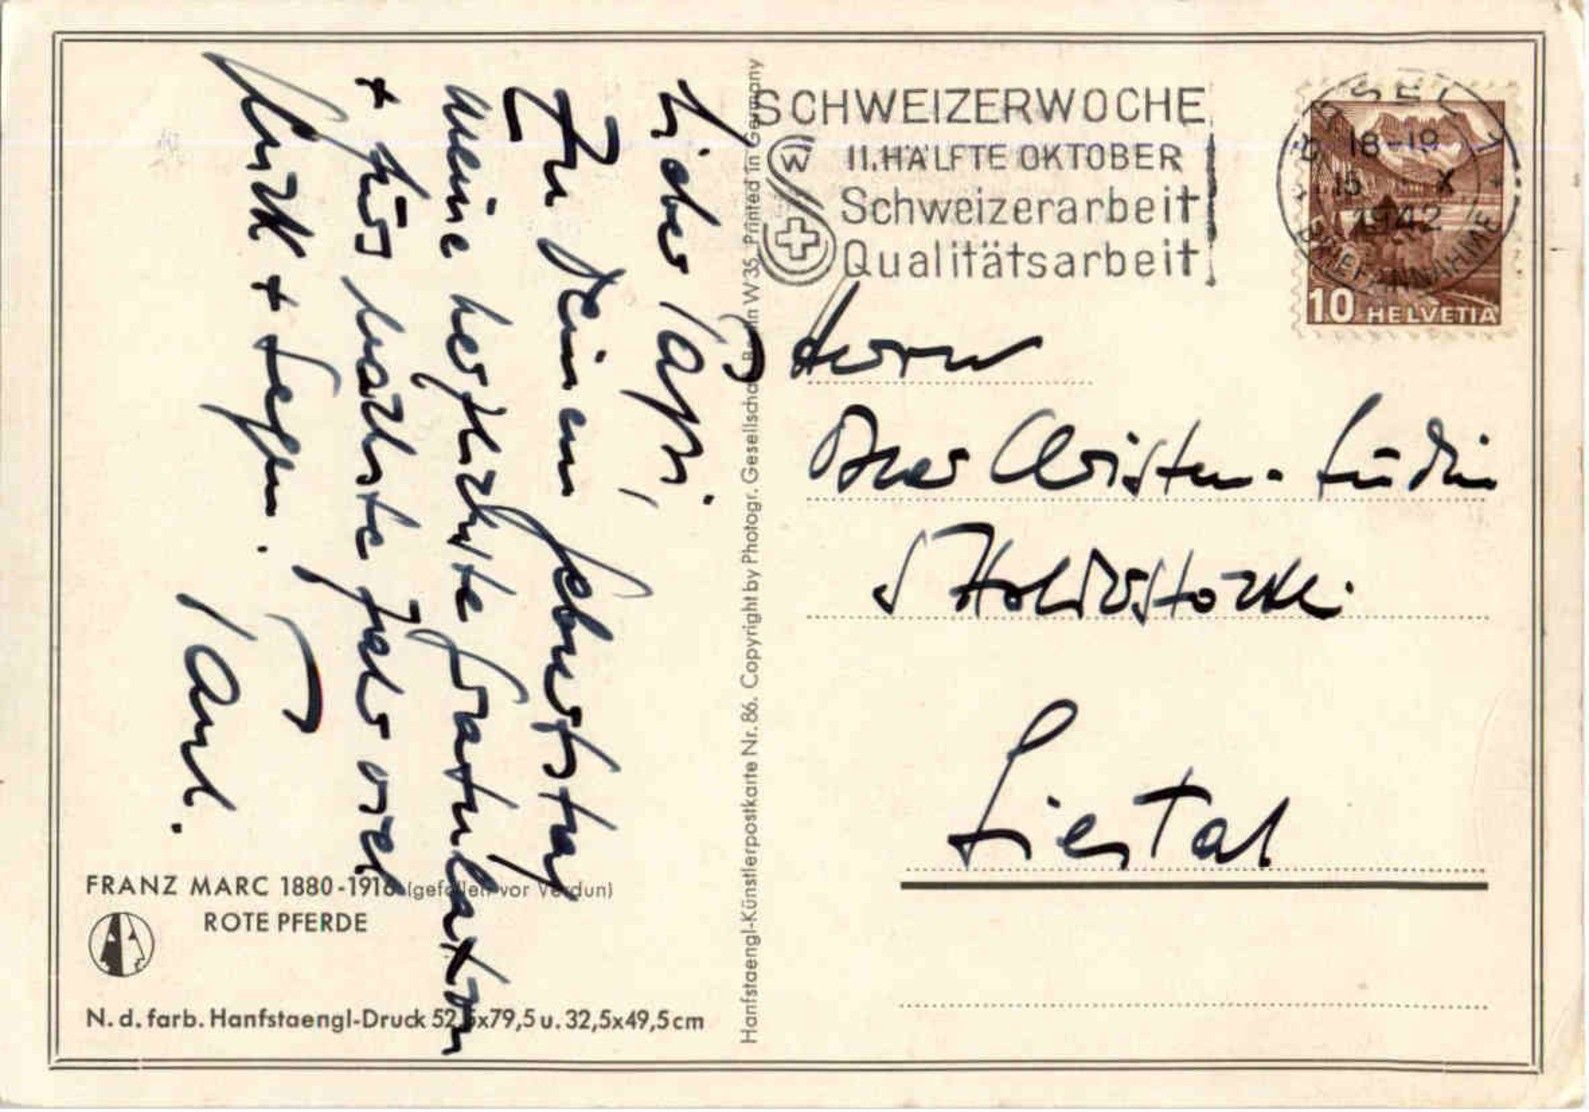 Lieber Papi,
Zu Deinem Geburtstag
meine herzlichste Gratulation
+ fürs nächste Jahr viel
Glück + Segen.
Paul.
FRANZ MARC 1880-1916 (gefallen vor Verdun)
ROTE PFERDE
N. d. farb. Hanfstaengl-Druck 52,5x79,5 u. 32,5x49,5 cm
Hanfstaengl-Künstlerpostkarte Nr. 86. Copyright by Photogr. Gesellschaft Berlin W 35. Printed in Germany
SCHWEIZERWOCHE
II. HÄLFTE OKTOBER
Schweizerarbeit
Qualitätsarbeit
W
BASEL 1
18-19
15. X
1942
BRIEFANNAHME
10 HELVETIA
Herrn
Christen-Lüdin
Liestal